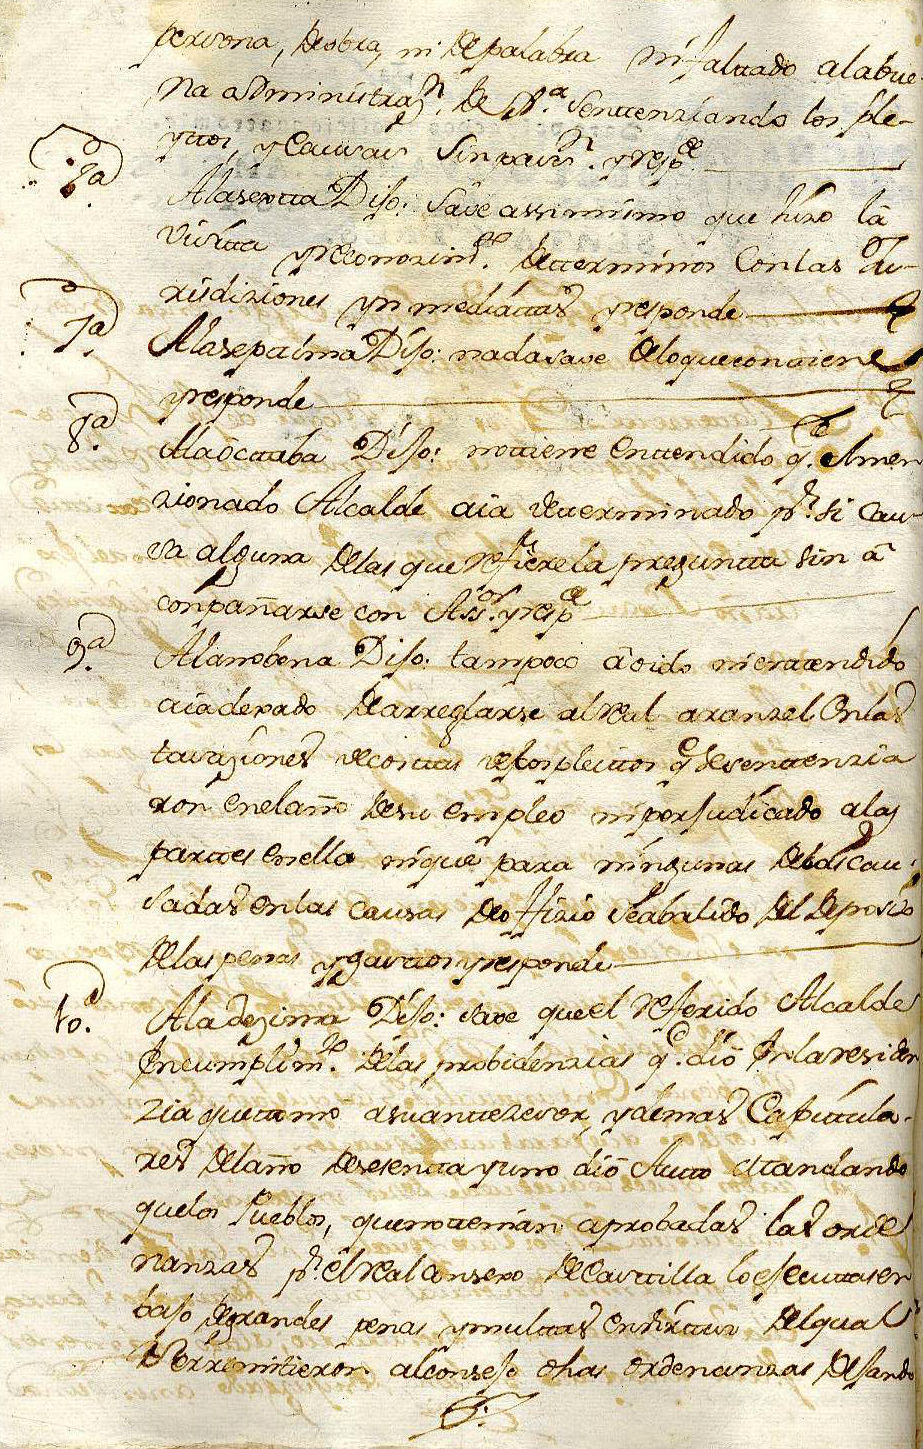 persona, de obra, ni de palabra ni faltado a la bue
na administraz.n de Jt.a Sentenziando los ple-
ytos, y Causas sin pasi.n y resp.de
6a
A la sexta Dijo: save assimismo que hizo la
Visita y reconozim.to de terminos con las Ju-
risdiziones ynmediattas y responde
7a
A la septtima Dijo: nada save de lo que contiene
y responde
8a
A la octtaba Dijo: no ttiene enttendido q.e el men
zionado Alcalde aia determinado p.r si cau-
sa alguna de las que refiere la pregunta sin a
conpañarse con Ass.or y resp.de
9a
A la nobena Dijo: tampoco a oido ni enttendido
aia dexado de arreglarse al real aranzel en las
tasaziones de costtas de los pleittos q.e se sentenzia
ron en el año de su empleo ni perjudicado a las
parttes en ello ni que para ningunas de las cau-
sadas en las causas de offizio se a balido del deposito
de las penas y gasttos y responde
10.a
A la dezima Dijo: save que el refferido Alcalde
En cumplim.to de las probidenzias q.e dio en la residen
zia que ttomó a su anttezesor, y demas Capittula-
res del año de sesentta y uno dio Auto mandando
que los Pueblos, que no ttenian aprobadas las orde
nanzas p.r el real consexo de Casttilla lo ejecuttasen
bajo de grandes penas y multtas en virttud del qual
remitieron al Consejo dhas ordenanzas dejando